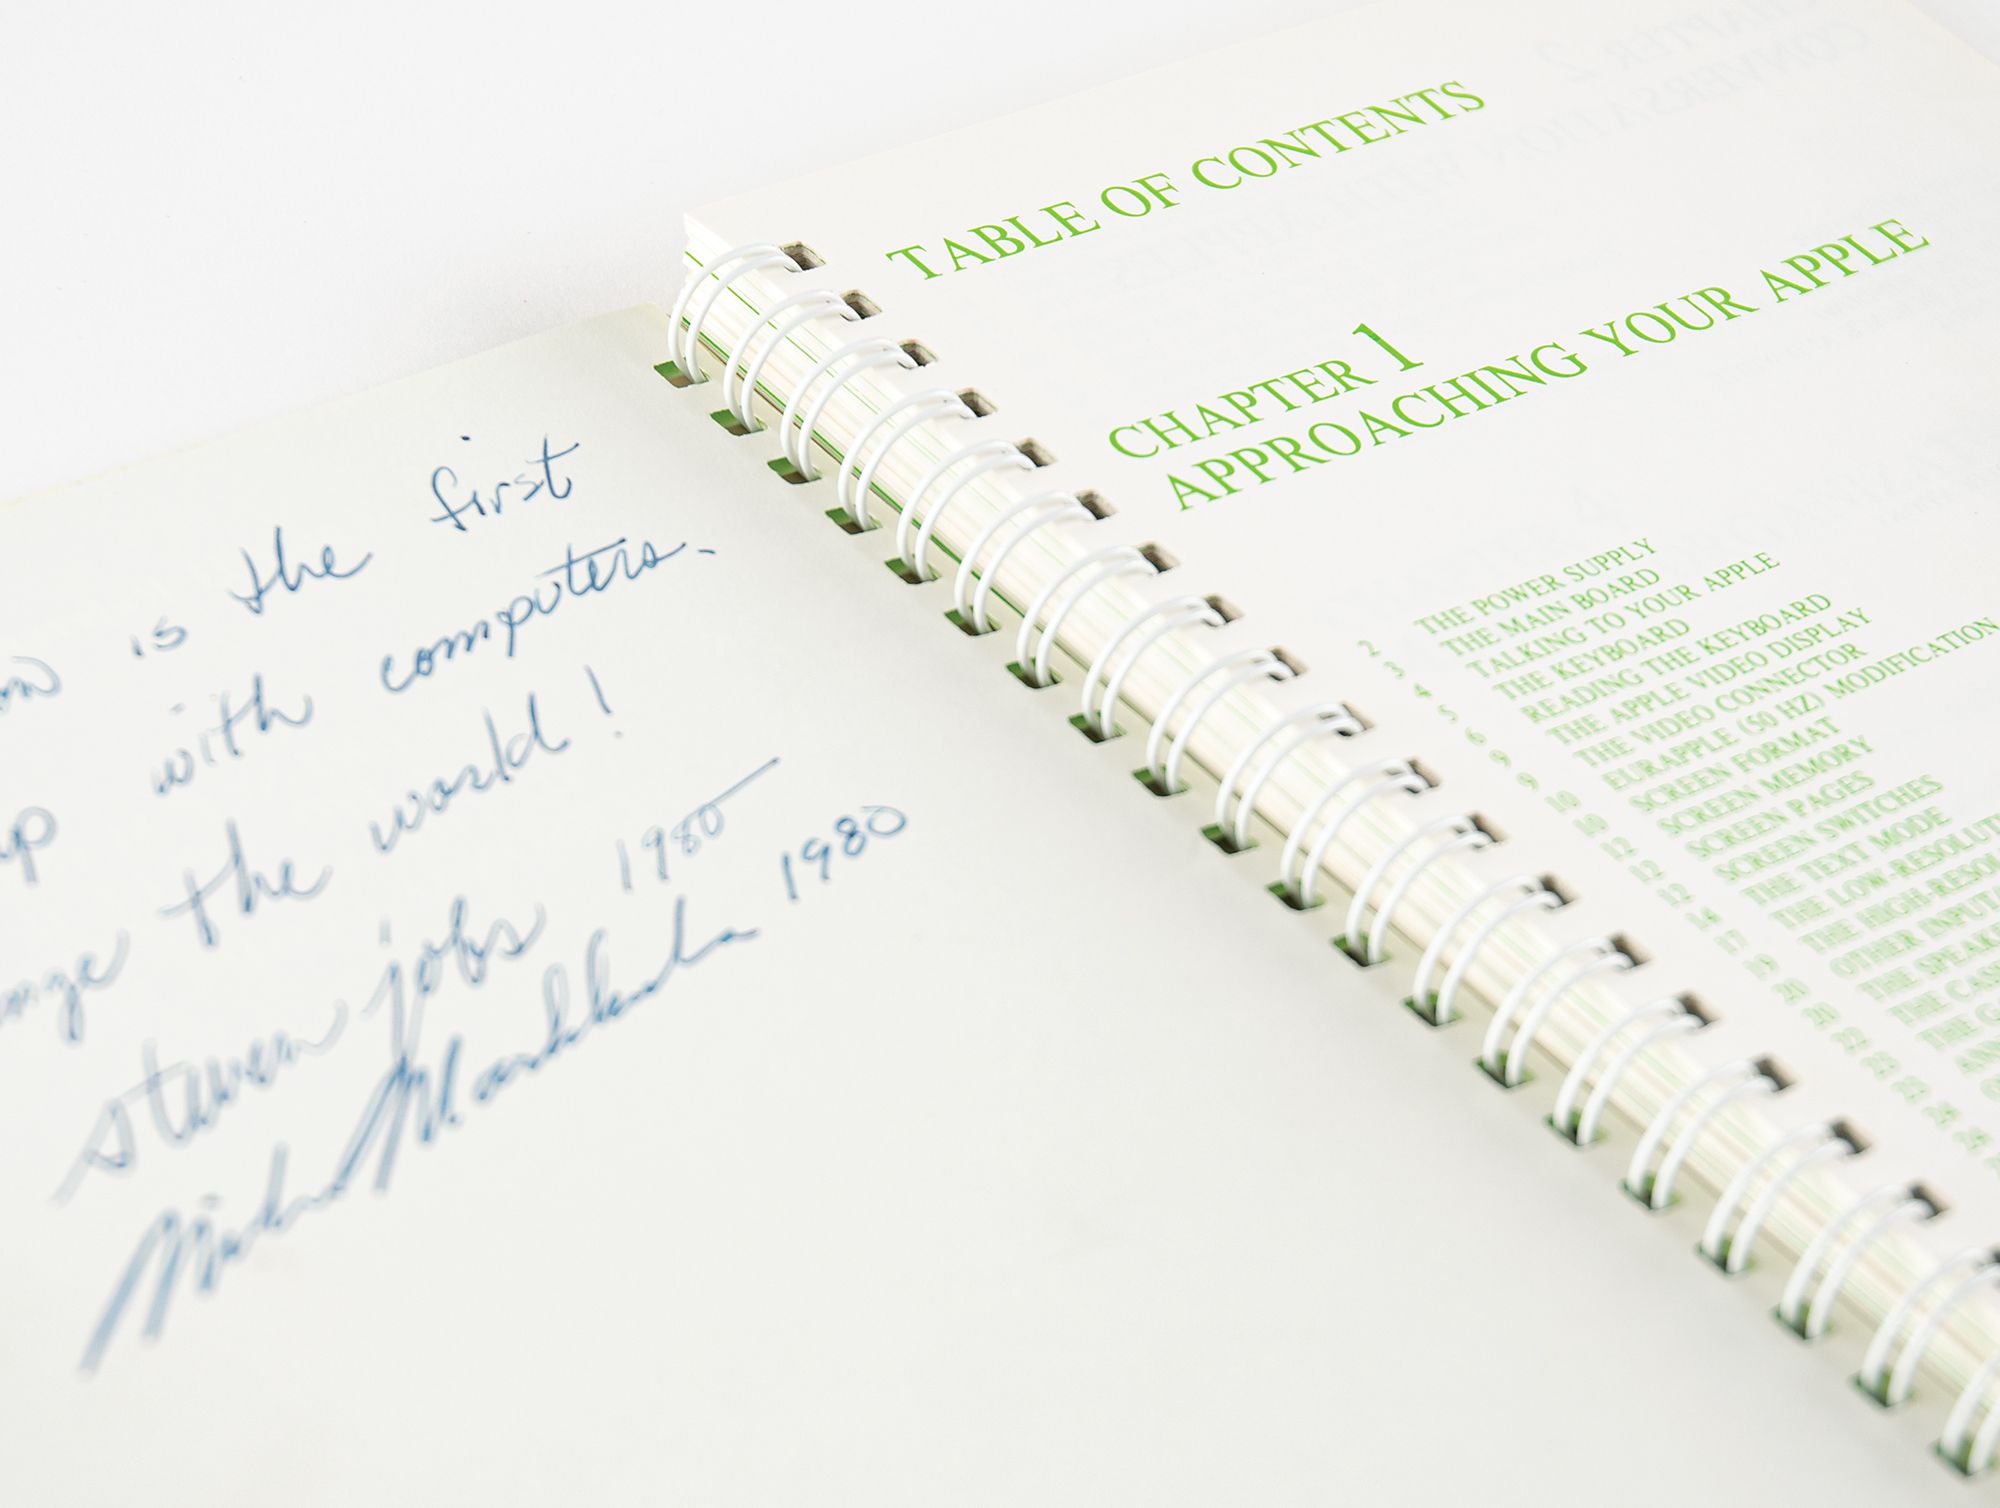 is the first
with computers.
the world!
steven jobs 1980
Markkula 1980
TABLE OF CONTENTS
CHAPTER 1
APPROACHING YOUR APPLE
2 THE POWER SUPPLY
3 THE MAIN BOARD
4 TALKING TO YOUR APPLE
5 THE KEYBOARD
6 READING THE KEYBOARD
9 THE APPLE VIDEO DISPLAY
9 THE VIDEO CONNECTOR
10 EURAPPLE (50 HZ) MODIFICATION
10 SCREEN FORMAT
12 SCREEN MEMORY
12 SCREEN PAGES
12 SCREEN SWITCHES
14 THE TEXT MODE
17 THE LOW-RESOLUTI
19 THE HIGH-RESOL
20 OTHER INPUT/
20 THE SPEAK
22 THE CAS